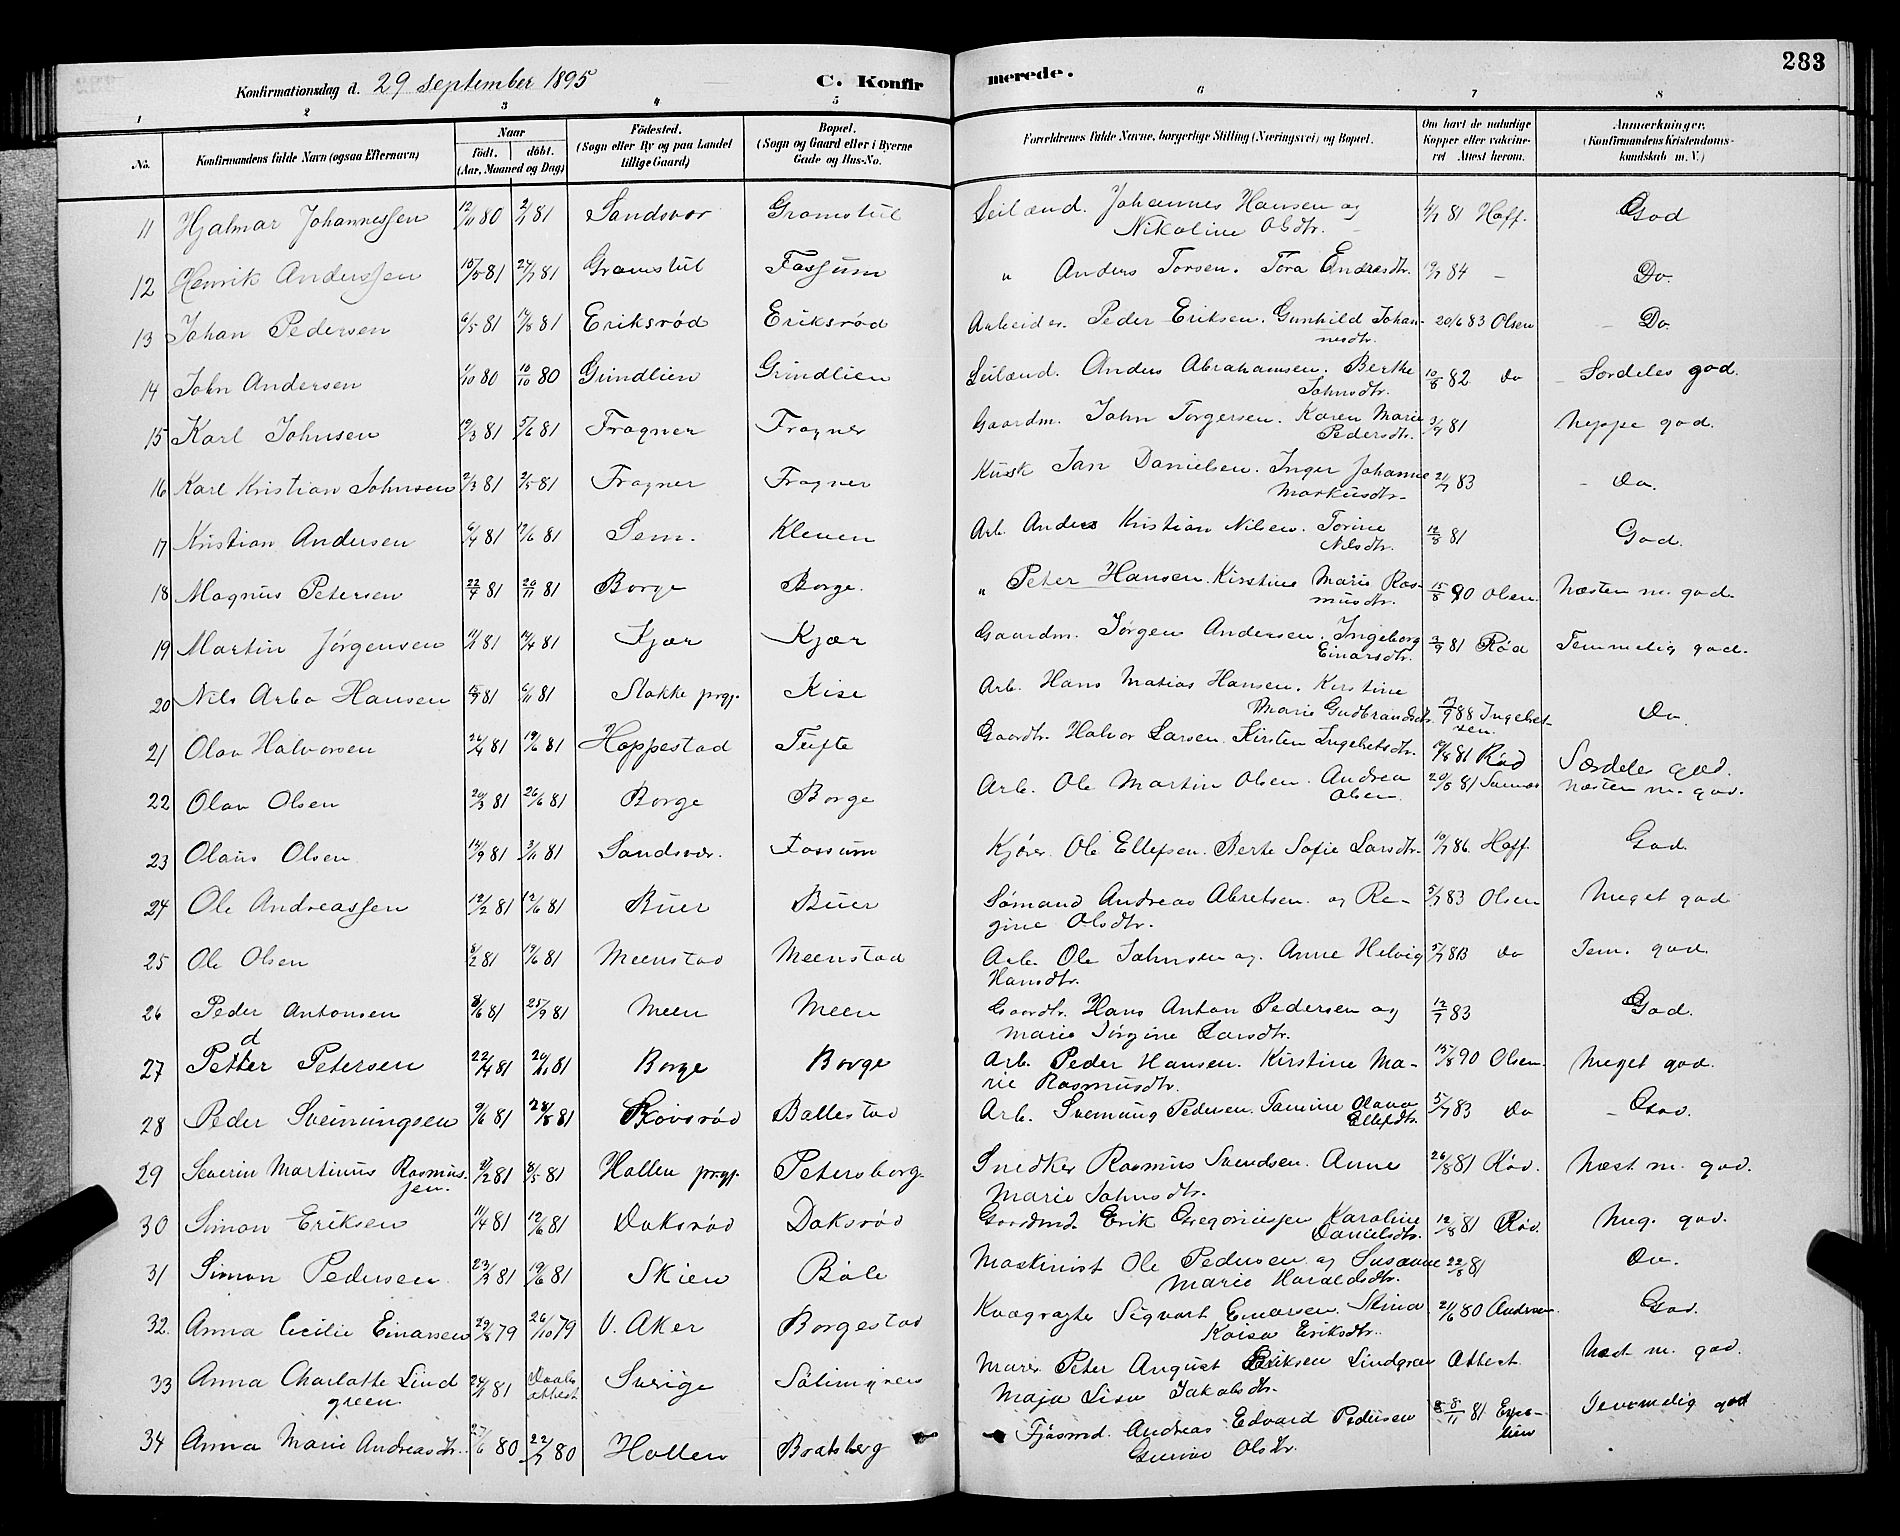 283
Konfirmationsdag d. 29 September 1895 C. Konfirmerede.
1 2 3 4 5 6 7 8
No. Konfirmandens fulde Navn (ogsaa Efternavn) Naar født. døbt. (Aar, Maaned og Dag) Fødested. (Sogn eller By og paa Landet tillige Gaard) Bopæl. (Sogn og Gaard eller i Byerne Gade og Hus-No. Forældrenes fulde Navne, borgerlige Stilling (Næringsvei) og Bopæl. Om havt de naturlige Kopper eller vakcineret Attest herom. Anmerkninger. (Konfirmandens Kristendomskundskab m. V.)
11 Hjalmar Johannessen 12/11 80 2/1 81 Sandsvær Gromstul Leilænd. Johannes Hansen og 81 Hoff. God
Nikoline Olsdtr.
12 Henrik Anderssen 15/5 81 24/7 81 Gromstul Fossum " Anders Torsen. Tora Endresdtr. 84 - Do.
13 Johan Pedersen 6/5 81 14/8 81 Eriksrød Eriksrød Arbeider. Peder Eriksen. Gunhild Johan- 20/6 83 Olsen - Do.
nesdtr.
14 John Andersen 1/10 80 10/10 80 Grindlien Grindlien Leilænd. Anders Abrahamsen. Berthe 10/8 82 Do - Særdeles god.
Johnsdtr.
15 Karl Johnsen 19/3 81 5/6 81 Frogner Frogner Gaardm. John Torgersen. Karen Marie 3/9 81 neppe god.
Pedersdtr.
16 Karl Kristian Johnsen 2/3 81 2/5 81 Frogner Frogner Kusk Jan Danielsen. Inger Johanne 83 - Do.
Markusdtr.
17 Kristian Andersen 6/4 81 12/6 81 Sem. Kleven Arb. Anders Kristian Nilsen. Torine 12/8 81 God.
Nilsdtr.
18 Magnus Petersen 22/4 81 20/11 81 Borge Borge. " Peter Hansen. Kirstine Marie Ras- 15/8 90 Olsen. Næsten m. god.
musdtr.
19 Martin Jørgensen 81 81 Kjær Kjær Gaardm. Jørgen Andersen. Ingeborg 3/9 81 Rød Temmelig god.
Einarsdtr.
20 Nils Arbo Hansen 81 6/11 81 Slakke prgj. Kise Arb. Hans Matias Hansen. Kirstine
Marie Gudbrandsdtr. 88 Ingebret- Do.
sen.
21 Olav Halvorsen 26/4 81 19/6 81 Hoppestad Tufte Gaardbr. Halvor Larsen. Kirsten Ingebretsdtr. 81 Rød Særdeles god.
22 Olav Olsen 20/3 81 26/6 81 Borge Borge Arb. Ole Martin Olsen. Andrea 20/8 81 Næsten m. god.
Olsen.
23 Olaus Olsen 14/9 81 3/11 81 Sandsvær. Fossum Kjører. Ole Ellefsen. Berte Sofie Larsdtr. 10/7 86 Hoff. God.
24 Ole Andreassen 12/2 81 12/6 81 Buer Buer Sømand Andreas Abretsen og Re- 5/7 83 Olsen Meget god
gine Olsdtr.
25 Ole Olsen 8/2 81 19/6 81 Meenstad Meenstad Arb. Ole Johnsen og Anne Helvig 5/7 83 Do Tem. god.
Hansdtr.
26 Peder Antonsen 8/6 81 25/9 81 Meen Meen Gaardbr. Hans Anton Pedersen og 12/7 83 God.
Marie Jørgine Larsdtr.
d
27 Petter Petersen 22/4 81 20/11 81 Borge Borge Arb. Peder Hansen. Kirstine Ma- 15/8 90 Olsen. Meget god.
rie Rasmusdtr.
28 Peder Sveinungsen 9/6 81 28/8 81 Skovsrød Ballestad Arb. Sveinung Pedersen. Tamine Olava 5/7 83 Do - God.
Ellefsdtr.
29 Severin Martinius Rasmus- 81 8/5 81 Hollen prgj. Petersborg Snedker Rasmus Svendsen. Anne 26/8 81 Rød. Næst m. god.
sen. Marie Johnsdtr.
30 Simon Eriksen 11/4 81 12/6 81 Doksrød Doksrød Gaardmd. Erik Gregoriussen Karoline 12/8 81 Rød. Meg. god.
Danielsdtr.
31 Simon Pedersen 23/3 81 19/6 81 Skien Bøle Maskinist Ole Pedersen og Susanne 22/8 81 Do.
Marie Haraldsdtr.
32. Anna Cecilie Einarsen 29/8 79 26/10 79 V. Aker Borgestad Kvægrøgter Sigvart Einarsen. Stina 21/6 80 Andersen. God.
Kaisa Eriksdtr.
33 Anna Charlotte Lind 24/1 81 Daabs attest Sverige Murer Peter August Eriksen Lindgren Attest. Næst m. god.
green. Maja Lisa Jakobsdtr.
34 Anna Marie Andreasdtr. 80 22/7 80 Hollen Bratsberg Fjøsmd. Andreas Edvard Pedersen 8/11 81 Temmelig god
Gurine Olsdtr.